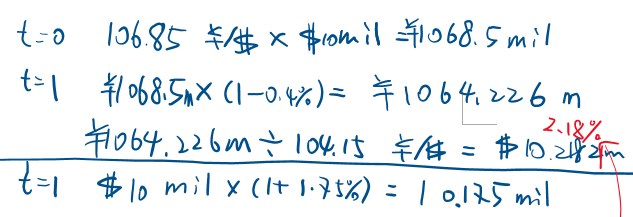 t=0 106.85 ¥/$ × $10mil = ¥1068.5 mil
t=1 ¥1068.5m × (1-0.4%) = ¥1064.226 m
2.18%
¥1064.226m ÷ 104.15 ¥/$ = $10.2182m
t=1 $10 mil × (1+1.75%) = 10.175 mil